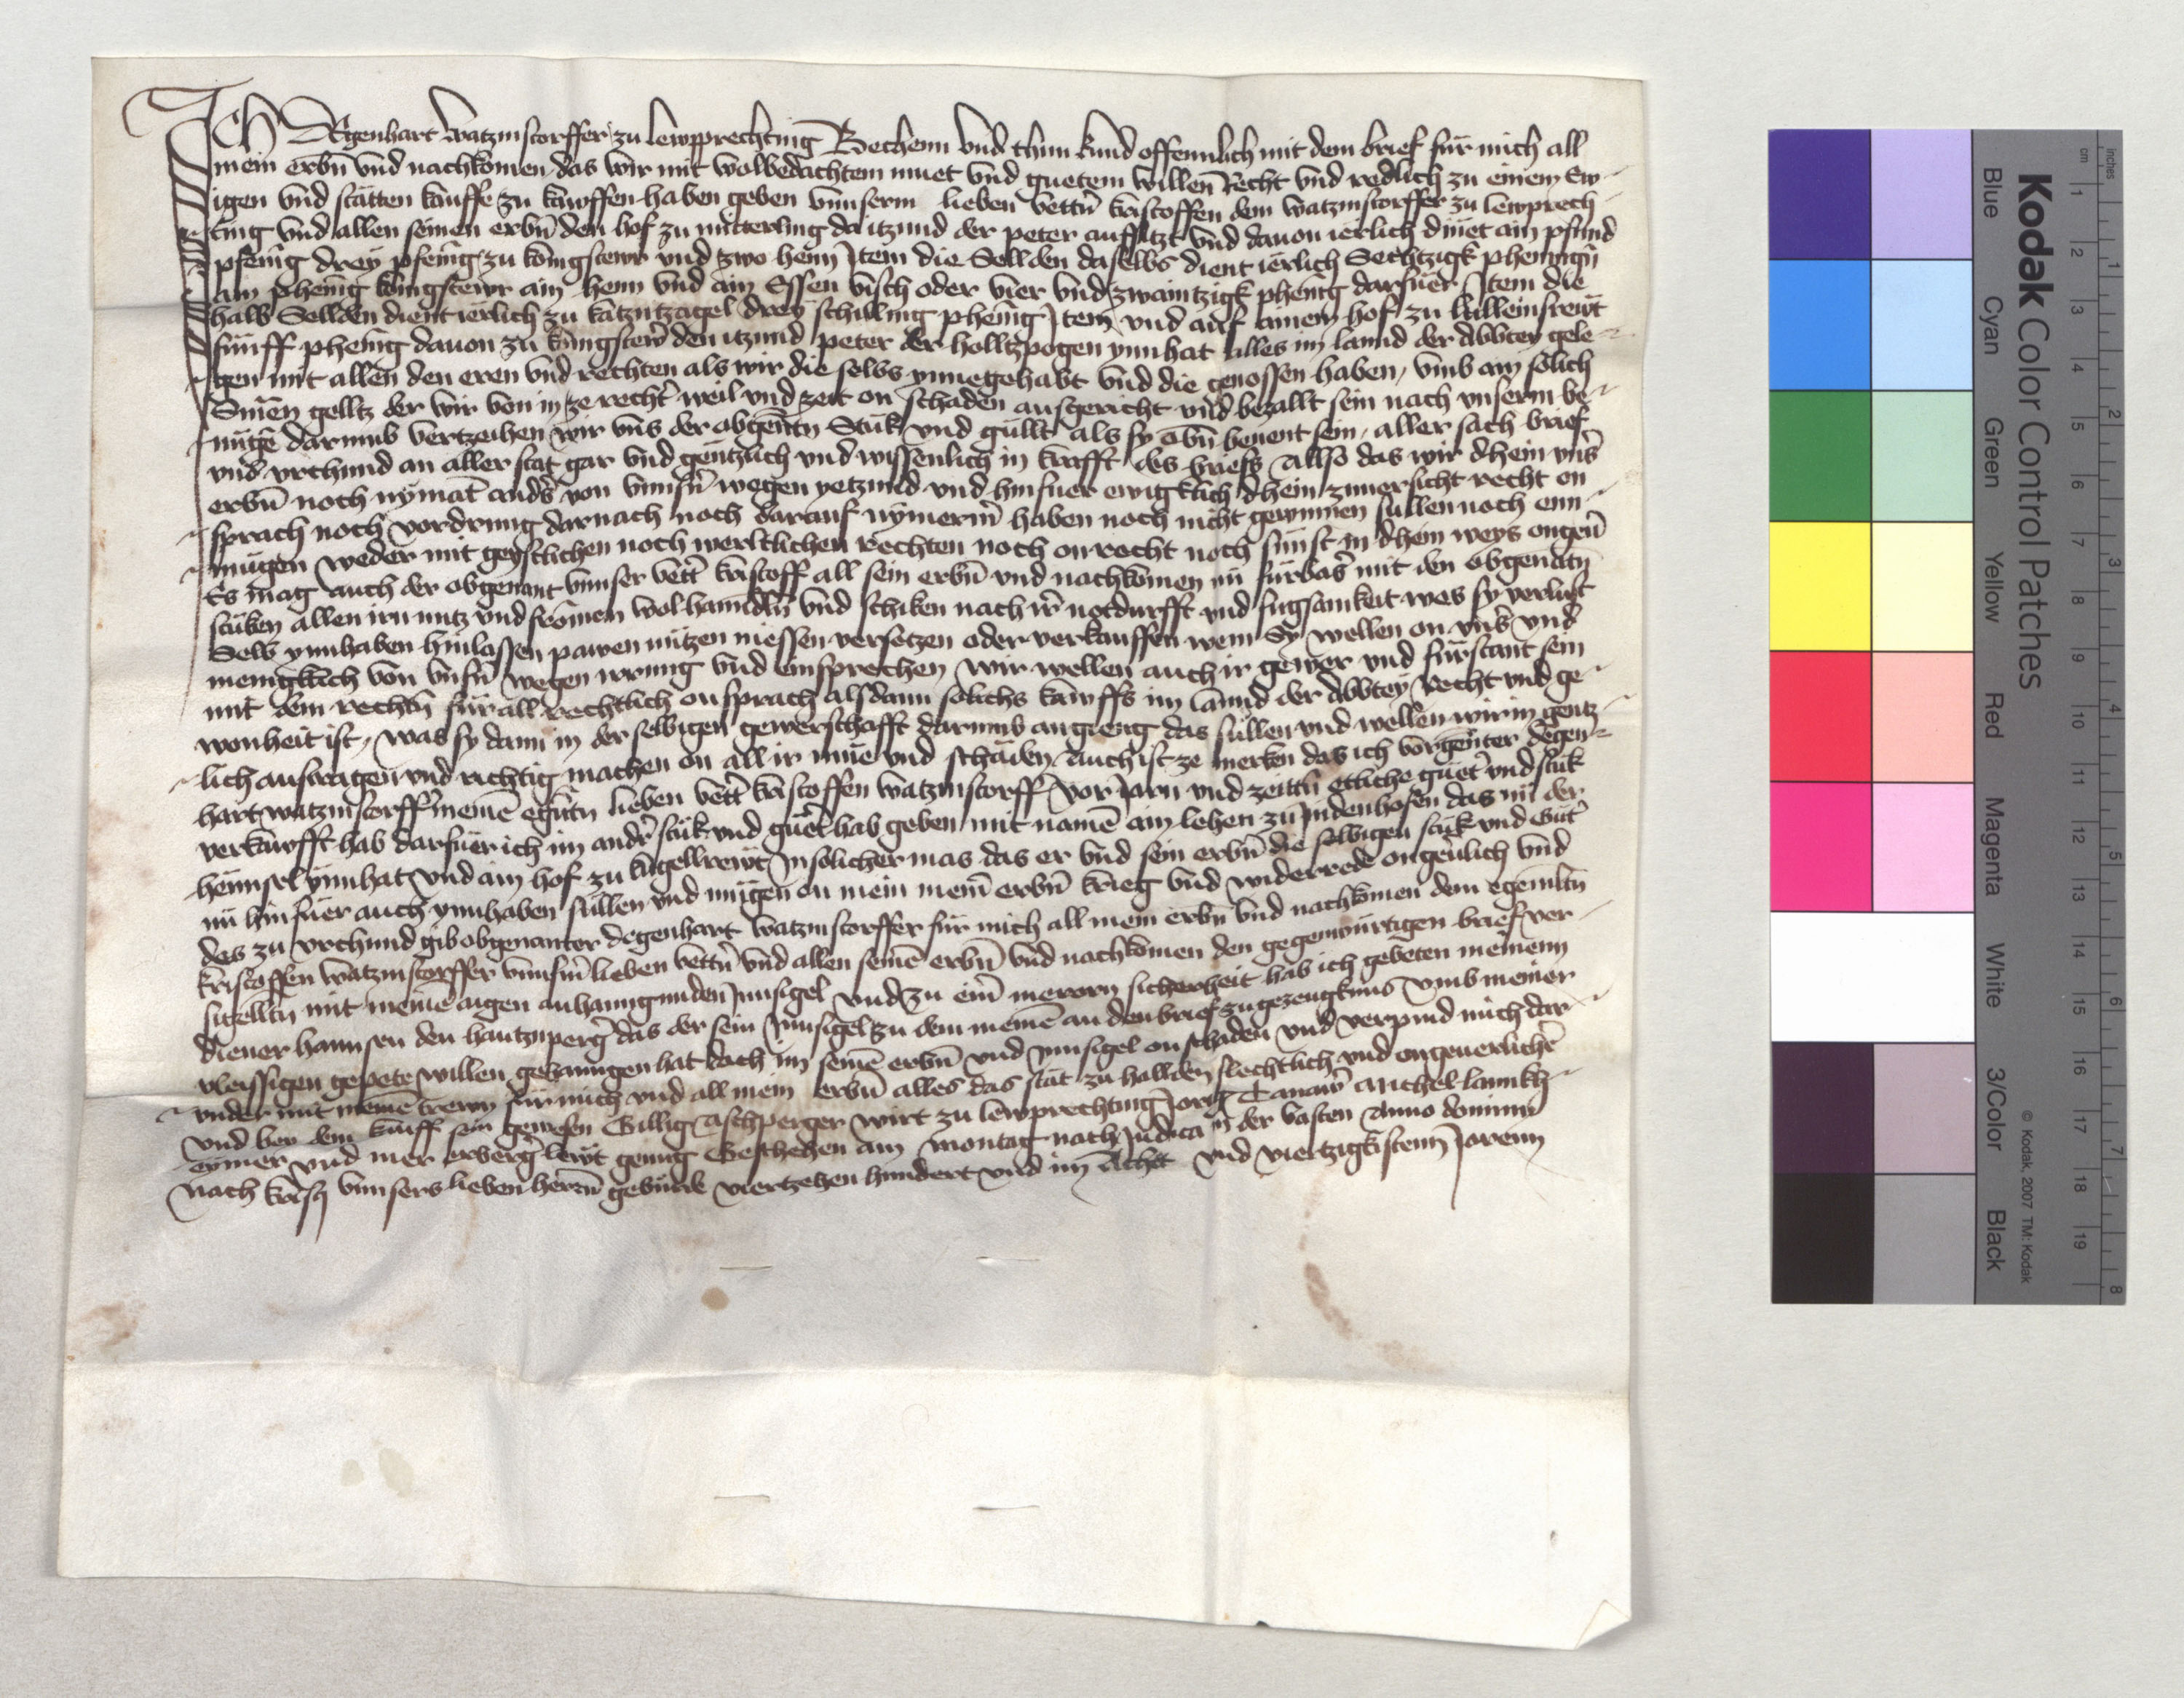 Ich Degenhart Watzmstorffer zu lewpprechting Bechenn vnd thun kund offennlich mit dem brief für mich all
mein erbn̄ vnd nachkomen das wir mit wolbedachtem muet vnd guetem willen Recht vnd redlich zu einem Ew
igen vnd stätten kauffe zu kawffen haben geben vnnserm lieben vettn̄ kristoffen dem watzmstorffer zu lewprech
ting vnd allen seinen erbn̄ den hof zu mitterling da itzund der peter auffsitzt vnd dauon ierlich dinet ain pfund
pfenīg drey pfenīg zu kōnigstewr vnd zwo henn Item die Sellden daselbs dient ierlich Sechtzigk phennīgn̄
ain phenīg kūngstewr ain henn vnd ain Essen visch oder vier vnd zwaintzigk phenīg darfuer Item die
halb Sellden dient ierlich zu katzntzagel drey schilling phenīg Item vnd auf ainem hof zu kalleinsrewt
fünff phenīg dauon zu kūngstewr den itzund peter der holltzpogen ynnhat alles im lannd der Abbtey gele
gen mit allen den eren vnd rechten als wir die selbs ynnegehabt vnd die genossen haben, vmb ain sölich
Sum̄en gelltz der wir von in ze rechtr̄ weil vnd zeit on schaden ausgericht vnd bezallt sein nach vnserm be
nügē darumb vertzeihen wir vns der obgen̄tn Stük vnd güllt als sy obn̄ benent sein, aller sach brief
vnd vrchund an aller stat gar vnd gentzlich vnd wissenlich in krafft des briefs Allso das wir dhein vnsr̄
erbn̄ noch nÿmāt andr̄s von vnnsn̄ wegen yetzund vnd hinfuer ewigklich dhein zuuersicht recht on
sprach noch vordrung darnach noch darauf nÿmermr̄ haben noch nicht gewinnen sullen noch enn
mügen weder mit geystlichen noch werltlichen rechten noch on recht noch sünst in dhein weys ongeū
Es mag auch der obgenant vnnser vettr̄ kristoff all sein erbn̄ vnd nachkomen nu fürbas mit den obgenātn
stüken allen irn nutz vnd frömen wol hanndln̄ vnd schiken nach ir̄ notdurfft vnd fugsamkeit was sy verlust
Selb ynnhaben hinlassen pawen nützen niessen versetzen oder verkauffen wem Sy wellen on vns̄ vnd
menigklich von vnsn̄ wegen irrung vnd einsprechen wir wellen auch ir gewer vnd fürstant sein
mit dem rechtn̄ für all rechtlich onsprach als dann sölichs kawffs im lannd der Abbtey Recht vnd ge
wonheit ist, was sy dann in der selbigen gewerschafft darumb angieng das süllen vnd wellen wir in gentz
lich austragen vnd richtig machen on all ir müe vnd schäden Auch ist ze merken das ich vorgen̄ter degen
hart watzmstorffr̄ meinē egn̄tn lieben vettr̄ kristoffen watzmstorff vor Jarn vnd zeittn̄ ettliche guetr̄ vnd stük
verkawfft hab darfüer ich im andr̄ stük vnd guetr̄ hab geben mit namē ain lehen zu Jndenhofen das nu der
hennsel ynnhat vnd ain hof zu kagellrewt Jn sölicher mas das er vnd sein erbn̄ die selbigen stük vnd Gütr̄
nu hinfüer auch ynnhaben süllen vnd mügen on mein meinr̄ erbn̄ krieg vnd widerrede ongeūlich vnd
des zu vrchund gib obgenanter degenhart watzmstorffer für mich all mein erbn̄ vnd nachkomen dem egemltn
kristoffen watzmstorffer vnnsm̄ lieben vettn̄ vnd allen seinē erbn̄ vnd nachkomen den gegenwürtigen brief ver
sigelltn mit meinē aigen anhanngunden Jnnsigel vnd zu einr̄ merern sicherheit hab ich gebeten meinenn
diener hannsen den hautznpergr̄ das der sein Jnnsigel zu dem meinē an den brief zu gezeugknus vmb meiner
vleissigen gepete willen gehanngen hat doch im seinē erbn̄ vnd Jnnsigel on schaden vnd verpind mich dar
vnder mit meinē trewn für mich vnd all mein erbn̄ alles das stät zu hallden slechtlich vnd ongeuerlichr̄
vnd bey dem kauff sein gewesen Gillig Aschperger wirt zu lewprechting Jorg Tanawr̄ Michel lannkh
eymer vnd mer erbergr̄ lewt genug Geschehen am Montag nach Judica in der vasten Anno domini
Nach kristi vnnsers lieben herrn̄ gebürde viertzehen hundert vnd im Acht vnd viertzigkistenn Jarenn
Kodak Color Control Patches
Blue Cyan Green Yellow Red Magenta White 3/Color Black
© Kodak, 2007 TM: Kodak
cm 1 2 3 4 5 6 7 8 9 10 11 12 13 14 15 16 17 18 19
inches 1 2 3 4 5 6 7 8